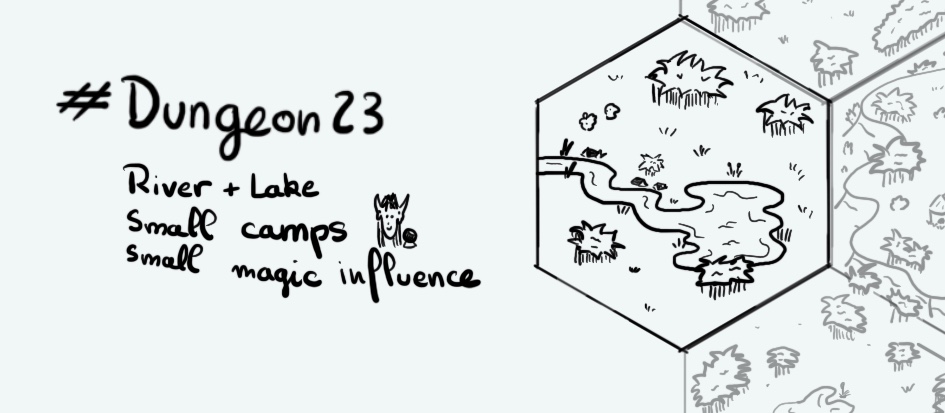 #Dungeon23
River + Lake
Small camps
small magic influence